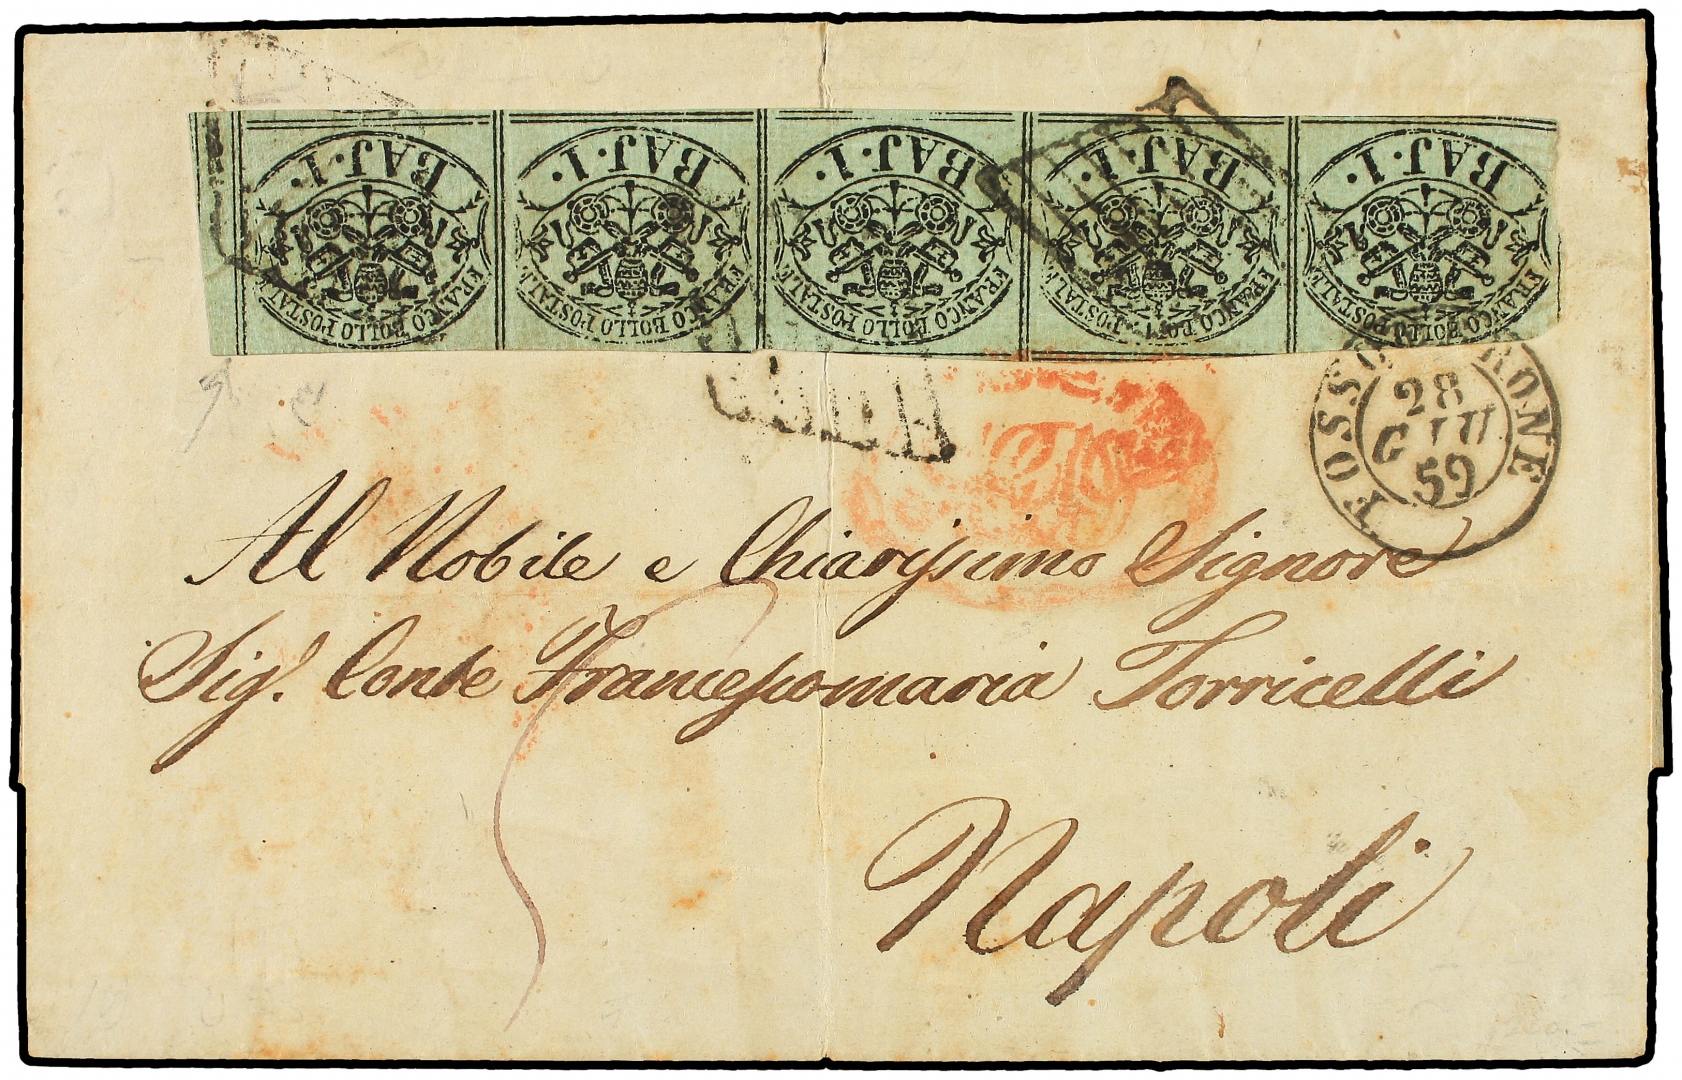 BAJ. 1. BAJ. 1. BAJ. 1. BAJ. 1. BAJ. 1.
FRANCO BOLLO POSTALE FRANCO BOLLO POSTALE FRANCO BOLLO POSTALE FRANCO POSTALE FRANCO BOLLO POSTALE
FOSSOMBRONE
28
GIU
59
Al Nobile e Chiarissimo Signore
Sig.r Conte Francescomaria Torricelli
Napoli